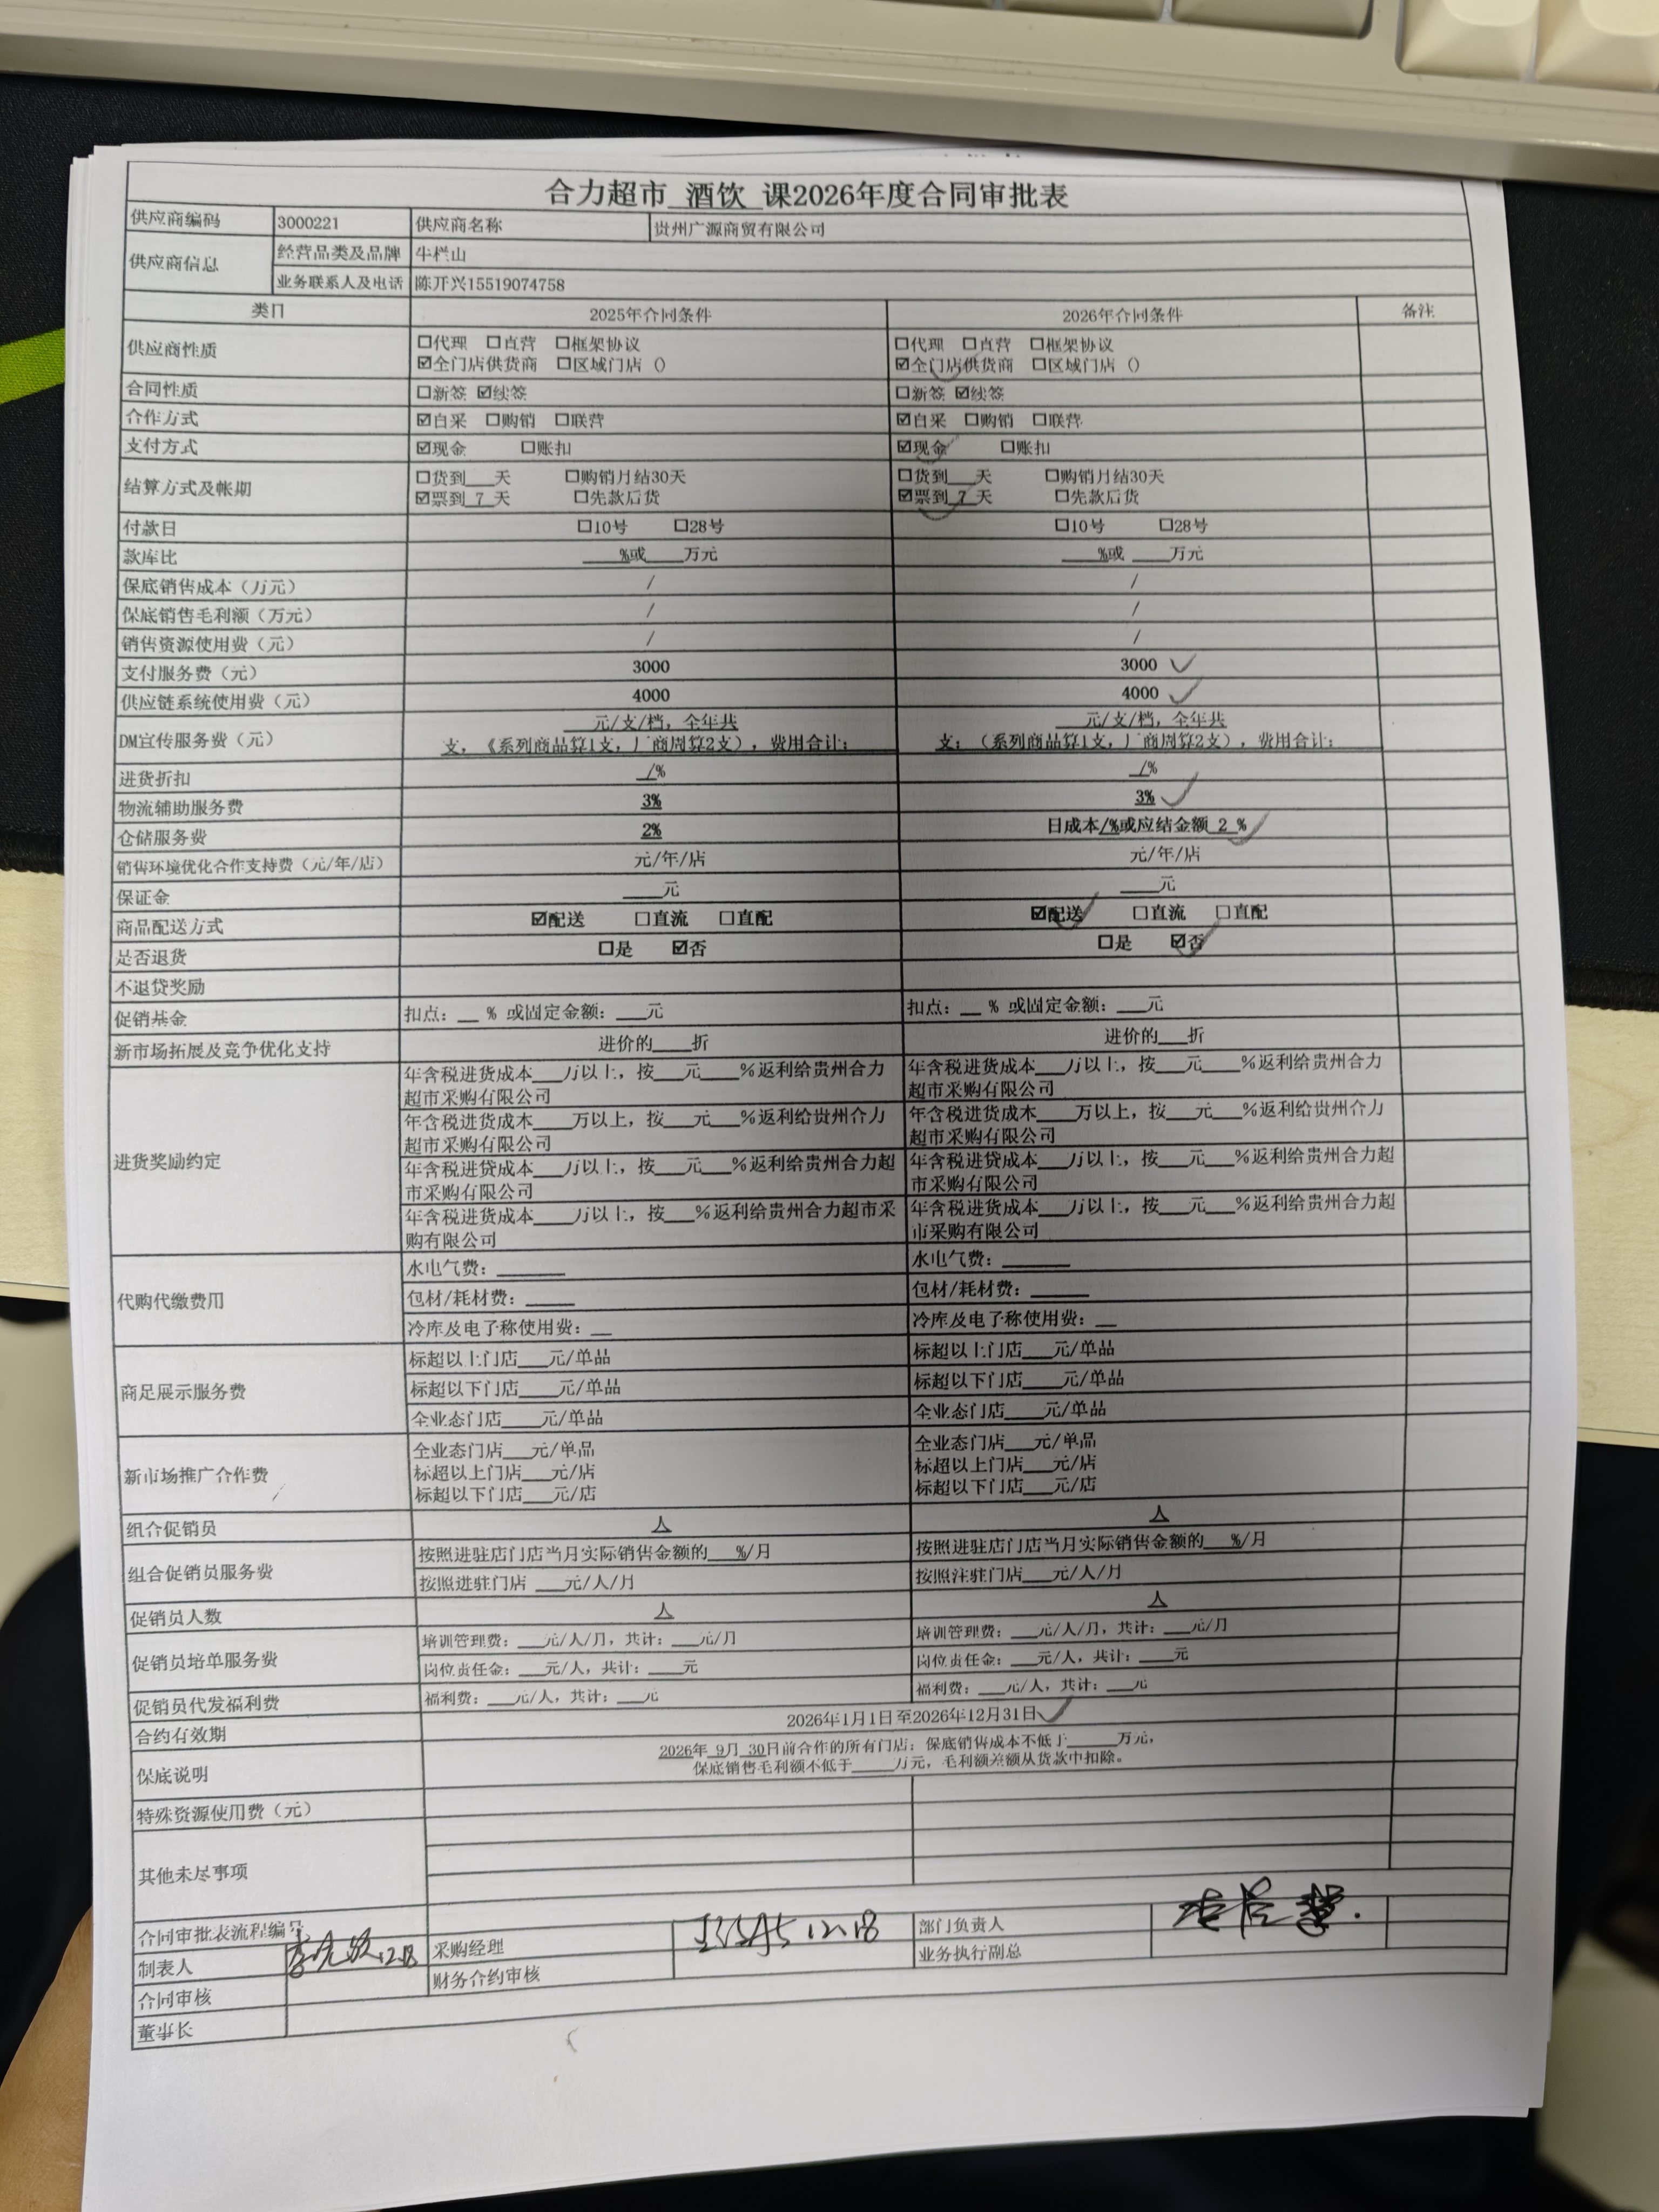 合力超市 酒饮 课2026年度合同审批表
供应商编码 3000221 供应商名称 贵州广源商贸有限公司
供应商信息 经营品类及品牌 牛栏山
业务联系人及电话 陈开兴15519074758
类目 2025年合同条件 2026年合同条件 备注
供应商性质 ☐代理 ☐直营 ☐框架协议 ☐代理 ☐直营 ☐框架协议
☑全门店供货商 ☐区域门店 () ☑全门店供货商 ☐区域门店 ()
合同性质 ☐新签 ☑续签 ☐新签 ☑续签
合作方式 ☑自采 ☐购销 ☐联营 ☑自采 ☐购销 ☐联营
支付方式 ☑现金 ☐账扣 ☑现金 ☐账扣
结算方式及帐期 ☐货到___天 ☐购销月结30天 ☐货到___天 ☐购销月结30天
☑票到_7_天 ☐先款后货 ☑票到_7_天 ☐先款后货
付款日 ☐10号 ☐28号 ☐10号 ☐28号
款库比 ____%或____万元 ____%或____万元
保底销售成本（万元） / /
保底销售毛利额（万元） / /
销售资源使用费（元） / /
支付服务费（元） 3000 3000 ✓
供应链系统使用费（元） 4000 4000 ✓
DM宣传服务费（元） ___元/支/档，全年共 ___元/支/档，全年共
支，《系列商品算1支，厂商周算2支），费用合计： 支；（系列商品算1支，厂商周算2支），费用合计：
进货折扣 /% /%
物流辅助服务费 3% 3% ✓
仓储服务费 2% 日成本/%或应结金额 2 % ✓
销售环境优化合作支持费（元/年/店） 元/年/店 元/年/店
保证金 ____元 ____元
商品配送方式 ☑配送 ☐直流 ☐直配 ☑配送 ☐直流 ☐直配
是否退货 ☐是 ☑否 ☐是 ☑否
不退贷奖励
促销基金 扣点：__ % 或固定金额：___元 扣点：__ % 或固定金额：___元
新市场拓展及竞争优化支持 进价的____折 进价的___折
进货奖励约定 年含税进货成本___万以上，按___元____%返利给贵州合力 年含税进货成本___万以上，按___元___%返利给贵州合力
超市采购有限公司 超市采购有限公司
年含税进货成本____万以上，按___元___%返利给贵州合力 年含税进货成本____万以上，按___元___%返利给贵州合力
超市采购有限公司 超市采购有限公司
年含税进贷成本___万以上，按___元___%返利给贵州合力超 年含税进贷成本___万以上，按___元___%返利给贵州合力超
市采购有限公司 市采购有限公司
年含税进货成本____万以上，按___%返利给贵州合力超市采 年含税进货成本___万以上，按___元___%返利给贵州合力超
购有限公司 市采购有限公司
代购代缴费用 水电气费：_______ 水电气费：_______
包材/耗材费：_____ 包材/耗材费：______
冷库及电子称使用费：__ 冷库及电子称使用费：__
商足展示服务费 标超以上门店___元/单品 标超以上门店___元/单品
标超以下门店____元/单品 标超以下门店____元/单品
全业态门店____元/单品 全业态门店____元/单品
新市场推广合作费 全业态门店___元/单品 全业态门店___元/单品
标超以上门店___元/店 标超以上门店___元/店
标超以下门店___元/店 标超以下门店___元/店
组合促销员 人 人
组合促销员服务费 按照进驻店门店当月实际销售金额的___%/月 按照进驻店门店当月实际销售金额的___%/月
按照进驻门店 ___元/人/月 按照注驻门店___元/人/月
促销员人数 人 人
促销员培单服务费 培训管理费：___元/人/月，共计：___元/月 培训管理费：___元/人/月，共计：___元/月
岗位责任金：___元/人，共计：____元 岗位责任金：___元/人，共计：____元
促销员代发福利费 福利费：___元/人，共计：___元 福利费：___元/人，共计：___元
合约有效期 2026年1月1日至2026年12月31日 ✓
保底说明 2026年 9月 30日前合作的所有门店：保底销售成本不低于______万元，
保底销售毛利额不低于_____万元，毛利额差额从货款中扣除。
特殊资源使用费（元）
其他未尽事项
合同审批表流程编号
制表人 12.18 采购经理 12.18 部门负责人
合同审核 财务合约审核 业务执行副总
董事长